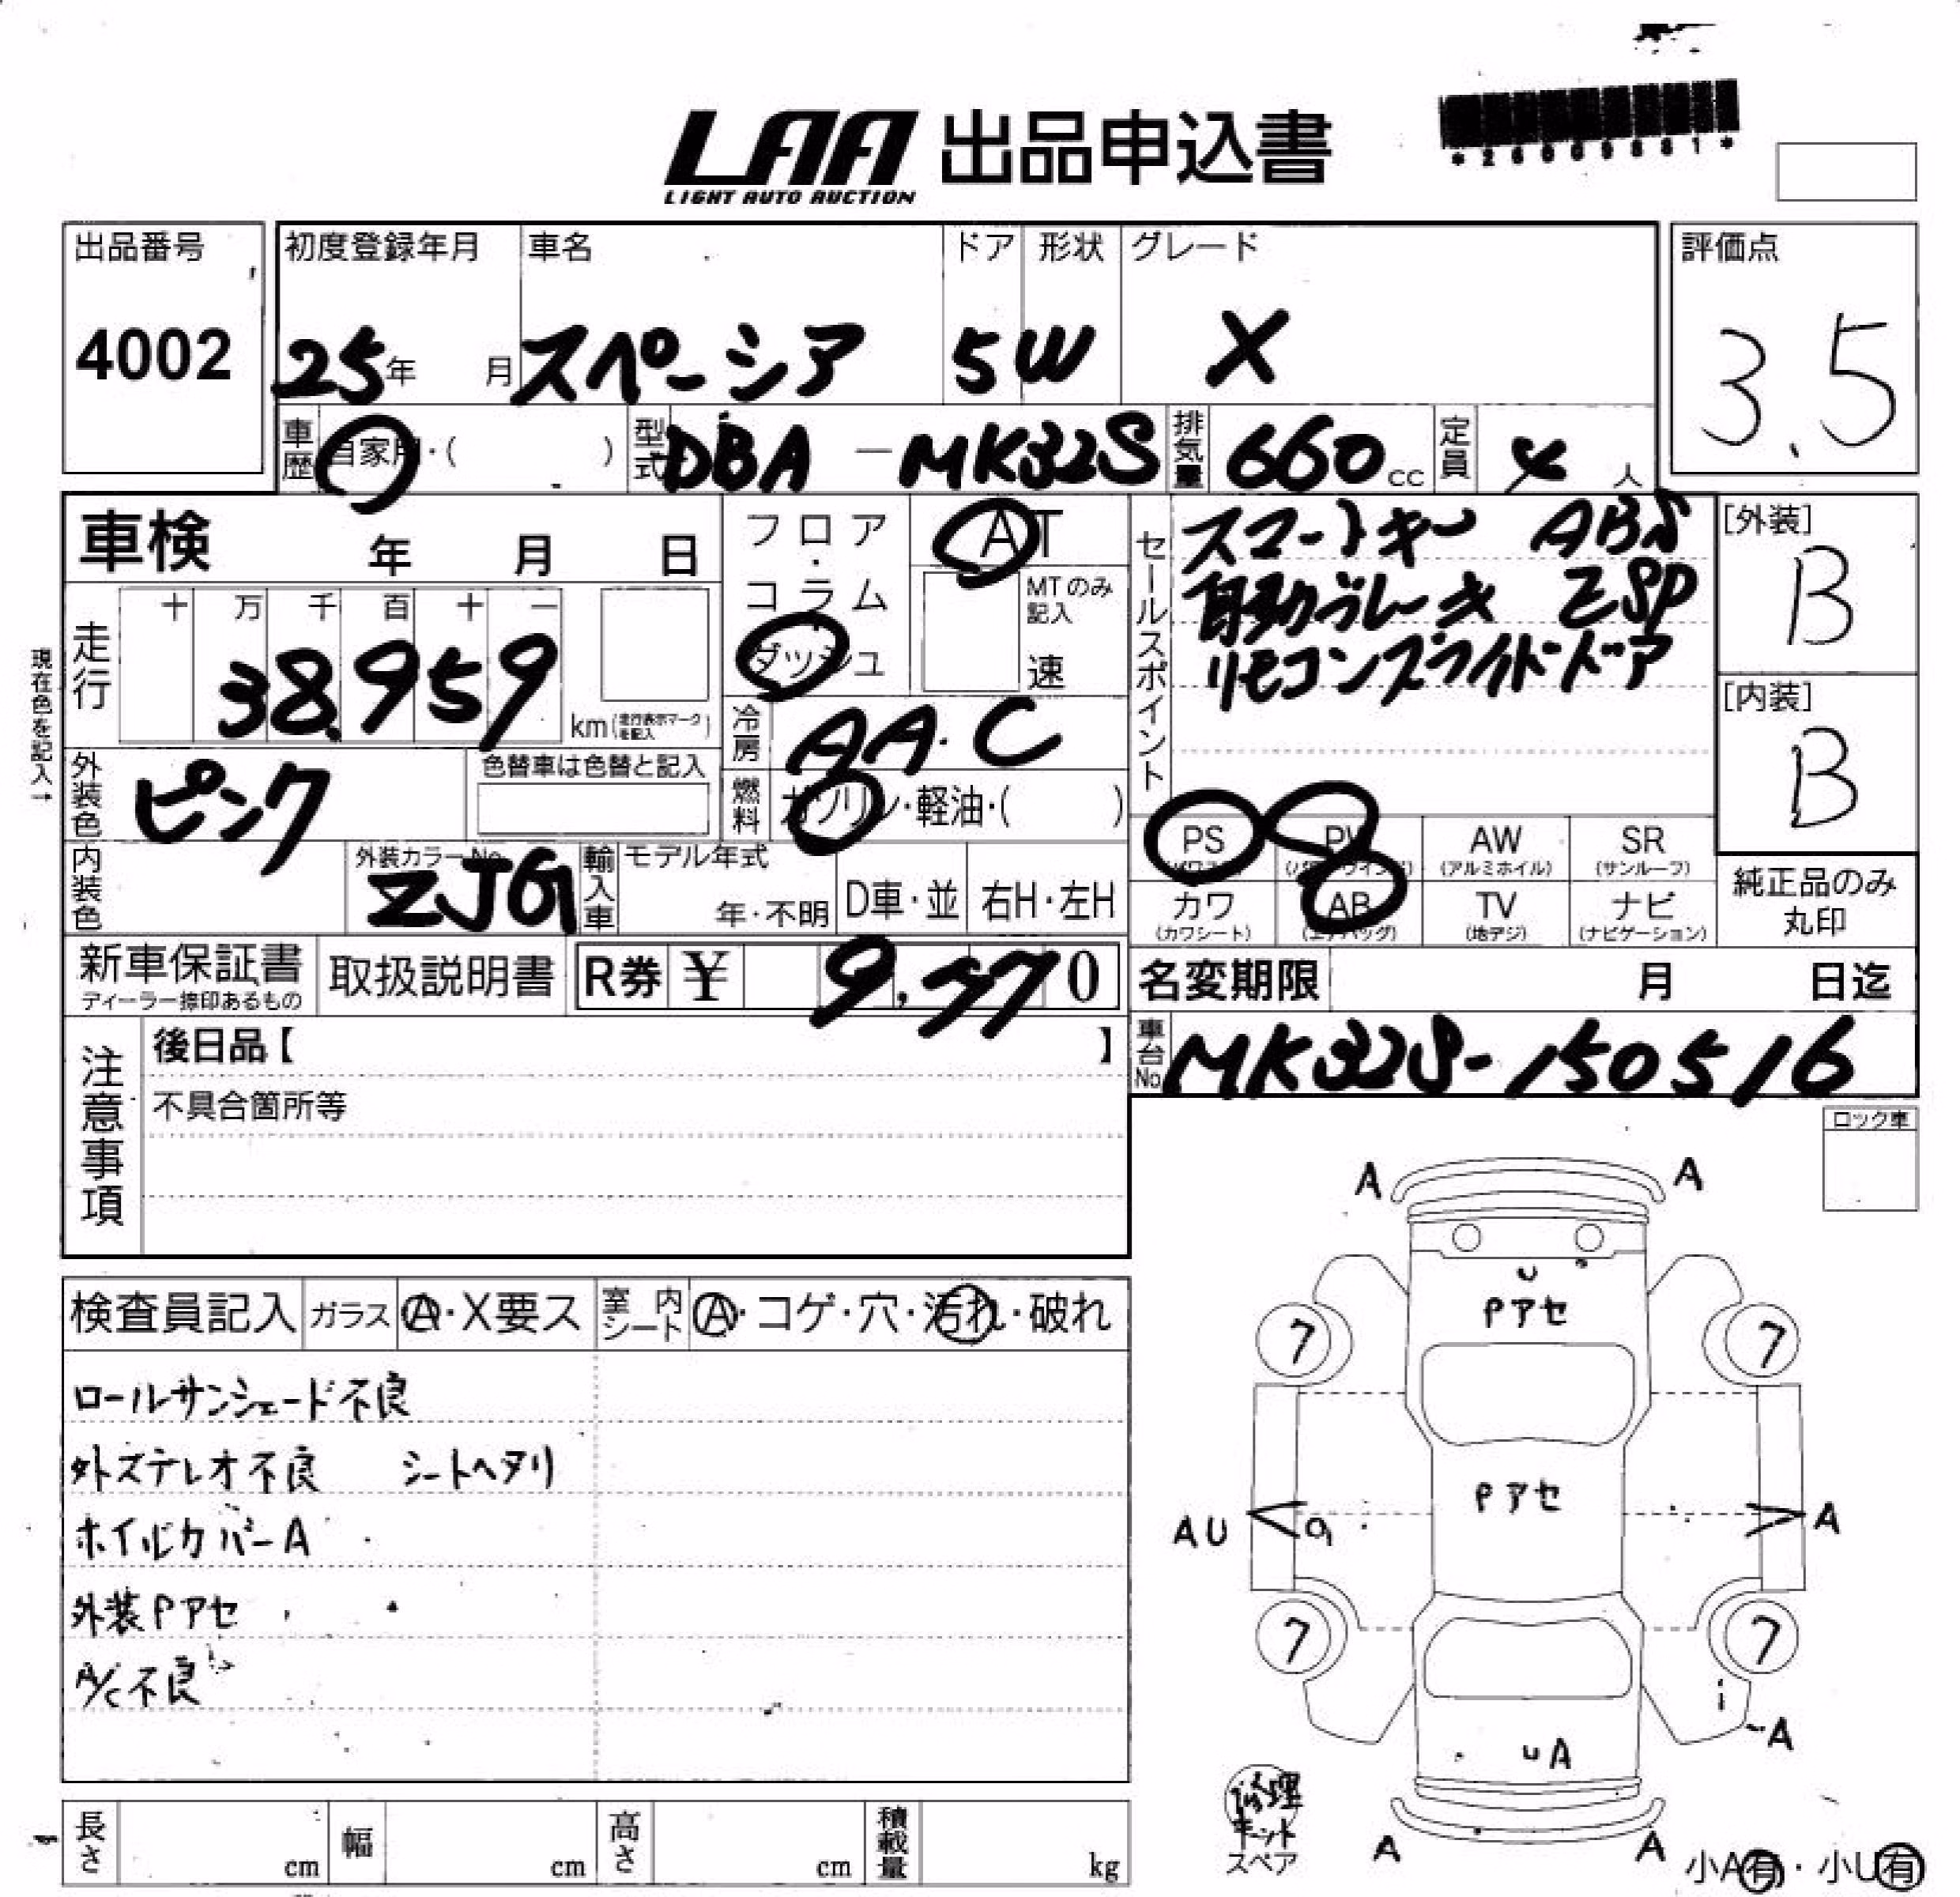 LAA 出品申込書
LIGHT AUTO AUCTION
出品番号
4002
初度登録年月 車名 ドア 形状 グレード
25年 月 スペーシア 5 W X
評価点
3.5
車歴 自家用・( ) 型式 DBA-MK32S 排気量 660cc 定員 4人
車検 年 月 日
フロア・コラム
ダッシュ
AT
MTのみ記入
速
セールスポイント
スマートキー ABS
自動ブレーキ ESP
リモコンスライドドア
[外装]
B
[内装]
B
現在色を記入→
走行 十 万 千 百 十 一
38.959
km(走行表示マークを記入)
冷房 AA.C
外装色 ピンク 色替車は色替と記入
燃料 ガソリン・軽油・( )
PS PW AW SR
(パワステ) (パワーウインド) (アルミホイル) (サンルーフ)
カワ AB TV ナビ
(カワシート) (エアバッグ) (地デジ) (ナビゲーション)
純正品のみ
丸印
内装色 外装カラーNo. ZJG 輸入車 モデル年式 年・不明 D車・並 右H・左H
新車保証書
ディーラー捺印あるもの
取扱説明書 R券 ¥ 9,370
名変期限 月 日迄
車台No. MK32S-150516
注意事項
後日品【 】
不具合箇所等
ロック車
検査員記入 ガラス A・X要ス 室内シート A・コゲ・穴・汚れ・破れ
ロールサンシェード不良
外ズテレオ不良 シートヘタリ
ホイルカバーA
外装Pアセ
A/C不良
A A
U
Pアセ
7 7
Pアセ
AU A
7 7
A
UA
修理
キット
スペア
A A
小A有・小U有
長さ cm 幅 cm 高さ cm 積載量 kg